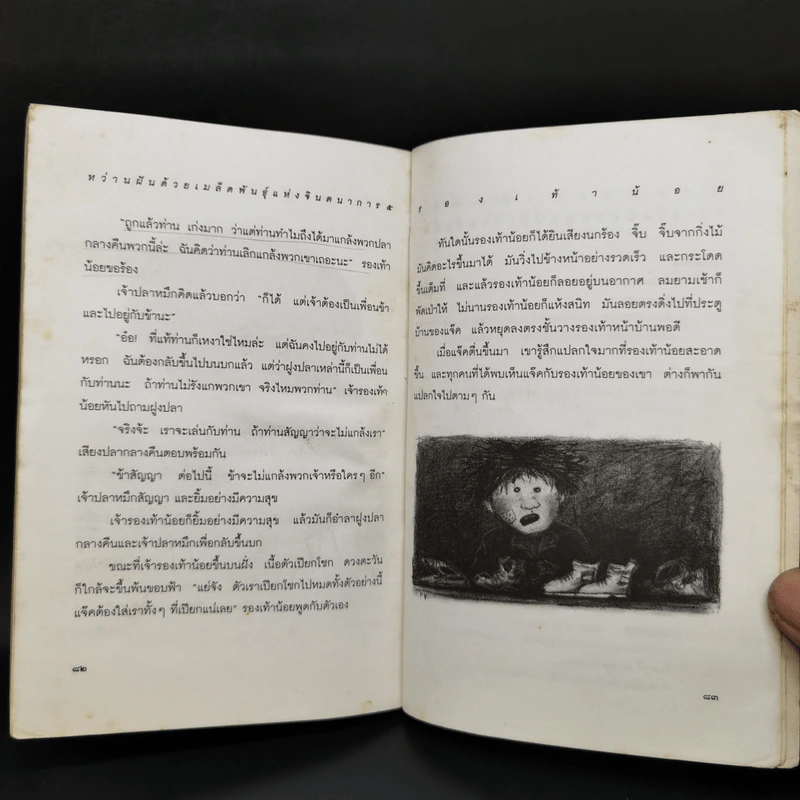 หว่านฝันด้วยเมล็ดพันธุ์แห่งจินตนาการ ๕
"ถูกแล้วท่าน เก่งมาก ว่าแต่ท่านทำไมถึงได้มาแกล้งพวกปลา
กลางคืนพวกนี้ล่ะ ฉันคิดว่าท่านเลิกแกล้งพวกเขาเถอะนะ" รองเท้า
น้อยขอร้อง
เจ้าปลาหมึกคิดแล้วบอกว่า "ก็ได้ แต่เจ้าต้องเป็นเพื่อนข้า
และไปอยู่กับข้านะ"
"อ๋อ! ที่แท้ท่านก็เหงาใช่ไหมล่ะ แต่ฉันคงไปอยู่กับท่านไม่ได้
หรอก ฉันต้องกลับขึ้นไปบนบกแล้ว แต่ว่าฝูงปลาเหล่านี้ก็เป็นเพื่อน
กับท่านนะ ถ้าท่านไม่รังแกพวกเขา จริงไหมพวกท่าน" เจ้ารองเท้า
น้อยหันไปถามฝูงปลา
"จริงจ้ะ เราจะเล่นกับท่าน ถ้าท่านสัญญาว่าจะไม่แกล้งเรา"
เสียงปลากลางคืนตอบพร้อมกัน
"ข้าสัญญา ต่อไปนี้ ข้าจะไม่แกล้งพวกเจ้าหรือใครๆ อีก"
เจ้าปลาหมึกสัญญา และยิ้มอย่างมีความสุข
เจ้ารองเท้าน้อยก็ยิ้มอย่างมีความสุข แล้วมันก็อำลาฝูงปลา
กลางคืนและเจ้าปลาหมึกเพื่อกลับขึ้นบก
ขณะที่เจ้ารองเท้าน้อยขึ้นบนฝั่ง เนื้อตัวเปียกโชก ดวงตะวัน
ก็ใกล้จะขึ้นพ้นขอบฟ้า "แย่จัง ตัวเราเปียกโชกไปหมดทั้งตัวอย่างนี้
แจ๊คต้องใส่เราทั้งๆ ที่เปียกแน่เลย" รองเท้าน้อยพูดกับตัวเอง
๘๒
รองเท้าน้อย
ทันใดนั้นรองเท้าน้อยก็ได้ยินเสียงนกร้อง จิ๊บ จิ๊บจากกิ่งไม้
มันคิดอะไรขึ้นมาได้ มันวิ่งไปข้างหน้าอย่างรวดเร็ว และกระโดด
ขึ้นเต็มที่ และแล้วรองเท้าน้อยก็ลอยอยู่บนอากาศ ลมยามเช้าก็
พัดเป่าให้ ไม่นานรองเท้าน้อยก็แห้งสนิท มันลอยตรงดิ่งไปที่ประตู
บ้านของแจ๊ค แล้วหยุดลงตรงชั้นวางรองเท้าหน้าบ้านพอดี
เมื่อแจ๊คตื่นขึ้นมา เขารู้สึกแปลกใจมากที่รองเท้าน้อยสะอาด
ขึ้น และทุกคนที่ได้พบเห็นแจ๊คกับรองเท้าน้อยของเขา ต่างก็พากัน
แปลกใจไปตามๆ กัน
๘๓